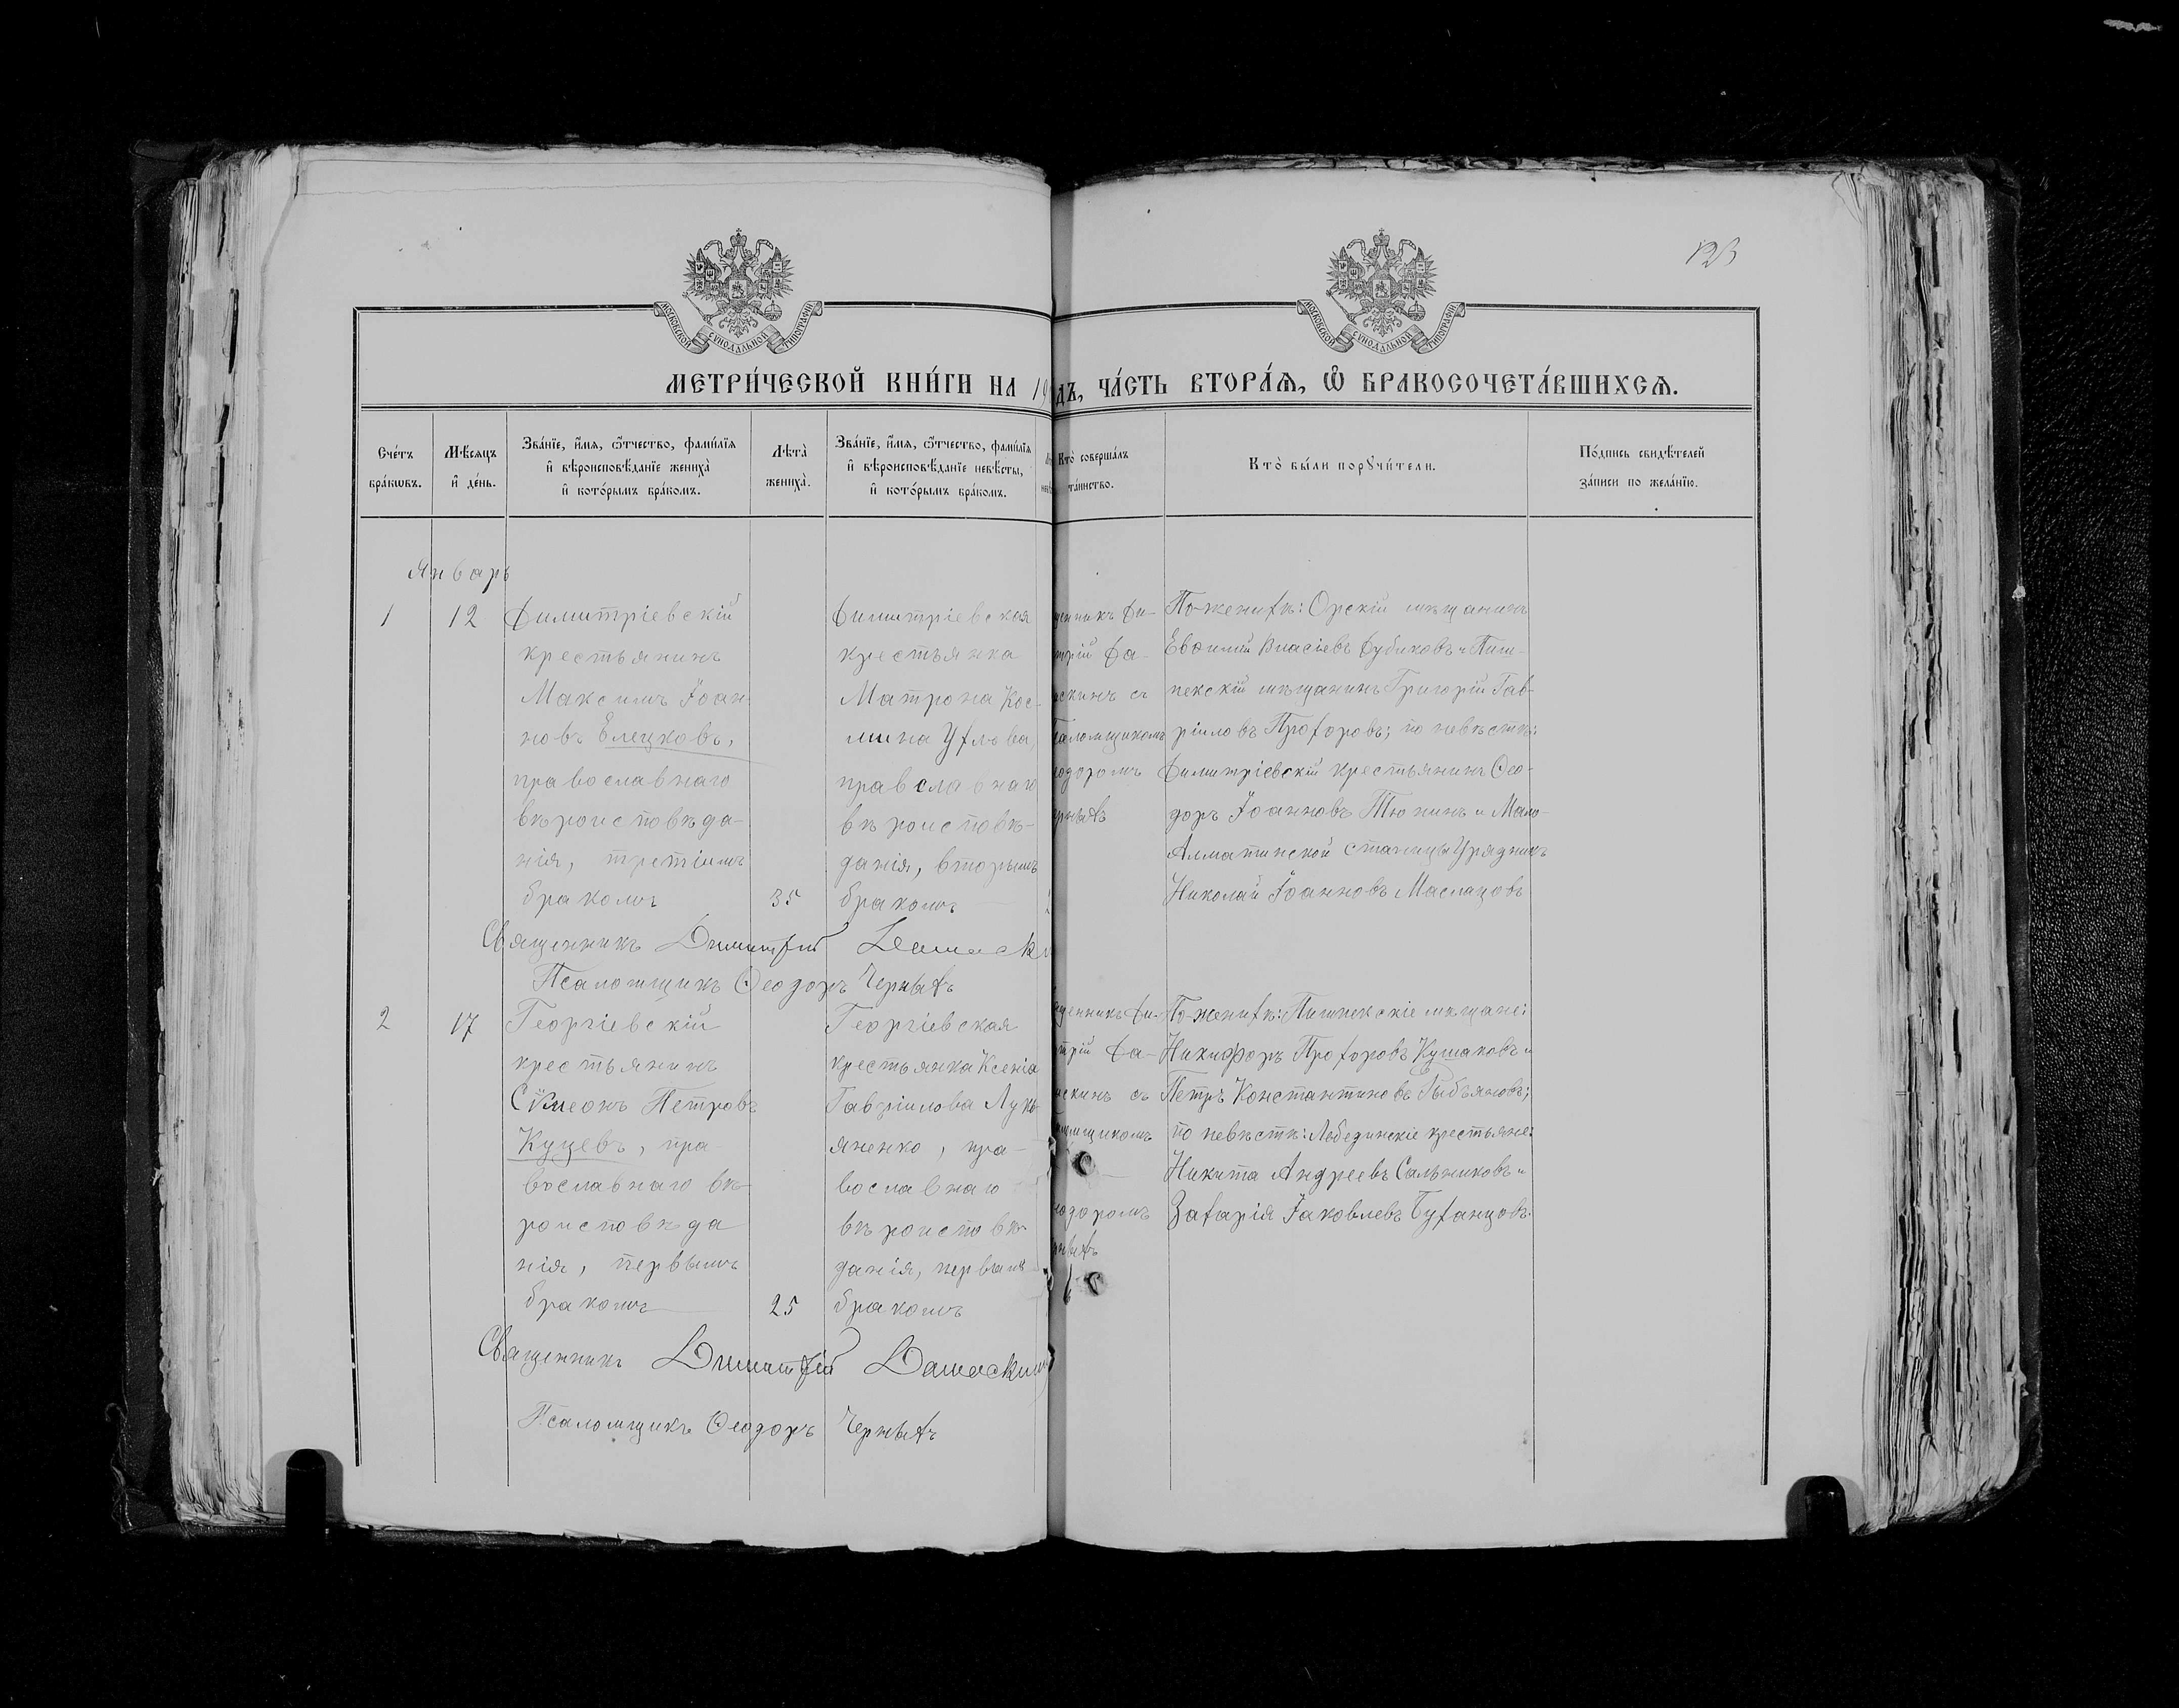 123
МОСКОВСКОЙ СУНОДАЛЬНОЙ ТИПОГРАФІИ
МОСКОВСКОЙ СУНОДАЛЬНОЙ ТИПОГРАФІИ
МЕТРИ́ЧЕСКОЙ КНИ́ГИ НА 19
дъ, ЧА́СТЬ ВТОРА́Ѧ, Ѽ БРАКОСОЧЕТА́ВШИХСѦ.
Сче́тъ
бра́кѡвъ.
Мѣ́сѧцъ
и҆ де́нь.
Зва́нїе, и҆́мѧ, ѻ҆́тчество, фами́лїѧ
и҆ вѣроисповѣ́данїе жениха̀
и҆ кото́рымъ бра́комъ.
Лѣта̀
жениха̀.
Зва́нїе, и҆́мѧ, ѻ҆́тчество, фами́лїѧ
и҆ вѣроисповѣ́данїе невѣ́сты,
и҆ кото́рымъ бра́комъ.
Кто̀ соверша́лъ
та́инство.
Кто̀ бы́ли порꙋчи́тели.
По́дпись свидѣ́телей
за́писи по жела́нїю.
Январь
1
12
Димитріевскій
крестьянинъ
Максимъ Іоан-
новъ Елецковъ,
православнаго
вѣроисповѣда-
нія, третіимъ
бракомъ
35
Димитріевская
крестьянка
Матрона Кос-
мина Ухлова,
правславнаго
вѣроисповѣ-
данія, вторымъ
бракомъ
щенникъ Ди-
трій Да-
скинъ съ
саломщикомъ
одоромъ
рныхъ
По женихѣ: Орскій мѣщанинъ
Евѳимій Власіевъ Дубиковъ и Пиш-
пекскій мѣщанинъ Григорій Гав-
ріиловъ Прохоровъ; по невѣстѣ:
Димитріевскій крестьянинъ Ѳео-
доръ Іоанновъ Тюнинъ и Мало-
Алматинской станицы Урядникъ
Николай Іоанновъ Маслацовъ
Священникъ Димитрій Дамаски
Псаломщикъ Ѳеодоръ Черныхъ
2
17
Георгіевскій
крестьянинъ
Сѵмеонъ Петровъ
Куцевъ, пра-
вославнаго вѣ-
роисповѣда
нія, первымъ
бракомъ
25
Георгіевская
крестьянка Ксенія
Гавріилова Лукь-
яненко, пра-
вославнаго
вѣроисповѣ-
данія, первымъ
бракомъ
щенникъ Ди-
трій Да-
скинъ съ
мщикомъ
одоромъ
рныхъ
По женихѣ: Пишпекскіе мѣщане:
Никифоръ Прохоровъ Кушаковъ и
Петръ Константиновъ Рыбъяновъ;
по невѣстѣ: Лебединскіе крестьяне:
Никита Андреевъ Сальниковъ и
Захарія Іаковлевъ Буханцовъ.
Священникъ Димитрій Дамаскинъ
Псаломщикъ Ѳеодоръ Черныхъ